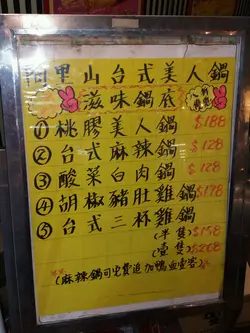 阿里山台式美人鍋
滋味鍋底
① 桃膠美人鍋 $188
② 台式麻辣鍋 $128
③ 酸菜白肉鍋 $128
④ 胡椒豬肚雞鍋 $178
⑤ 台式三杯雞鍋
(半隻) $158
(壹隻) $268
(麻辣鍋可免費追加鴨血壹客)